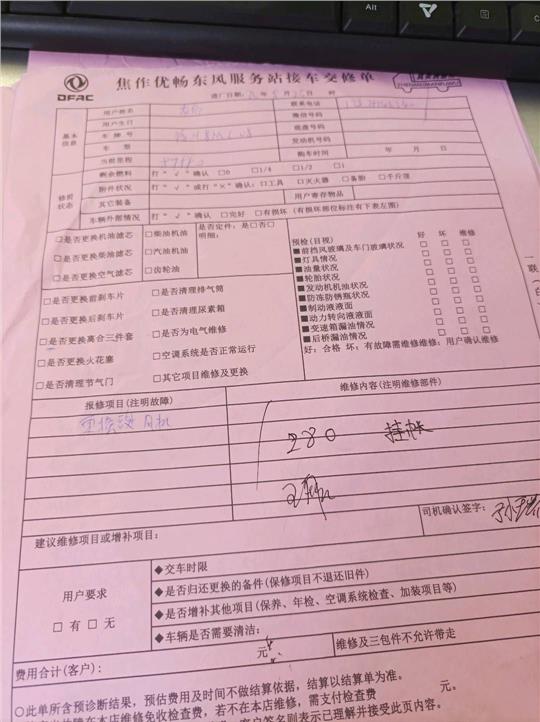 Alt
DFAC
焦作优畅东风服务站接车交修单
进厂日期: 年 月 日 时
基本信息
用户姓名 联系电话
用户生日 微信号码
车牌号 底盘号码
车 型 发动机号码
当前里程 购车时间 年 月 日
修前状态
剩余燃料 打“√”确认 □0 □1/4 □1/2 □1
附件状况 打“√”或打“×”确认:□工具 □灭火器 □备胎 □千斤顶
其它装备 用户寄存物品
车辆外部情况 打“√”确认 □完好 □有损坏 (有损坏部位标注有下表左图)
□是否更换机油滤芯 □柴油机油 是否定件: 是□否□
□是否更换柴油滤芯 □汽油机油 明细:
□是否更换空气滤芯 □齿轮油
□是否更换前刹车片 □是否清理排气筒
□是否更换后刹车片 □是否清理尿素箱
□是否更换离合三件套 □是否为电气维修
□是否更换火花塞 □空调系统是否正常运行
□是否清理节气门 □其它项目维修及更换
预检(目视) 好 坏 维修
■前挡风玻璃及车门玻璃状况 □ □ □
■灯具情况 □ □ □
■油量状况 □ □ □
■轮胎状况 □ □ □
■发动机机油状况 □ □ □
■防冻防锈瓶状况 □ □ □
■制动液液面 □ □ □
■动力转向液液面 □ □ □
■变速箱漏油情况 □ □ □
■后桥漏油情况 □ □ □
好:合格 坏:有故障需维修维修:用户确认维修
报修项目(注明故障) 维修内容(注明维修部件)
280 挂帐
司机确认签字:
建议维修项目或增补项目:
用户要求
□有 □无
◆交车时限
◆是否归还更换的备件(保修项目不退还旧件)
◆是否增补其他项目(保养、年检、空调系统检查、加装项目等)
◆车辆是否需要清洁:
费用合计(客户): 元 维修及三包件不允许带走
○此单所含预诊断结果,预估费用及时间不做结算依据,结算以结算单为准。
在本店维修免收检查费,若不在本店维修,需支付检查费 元。
客户签名则表示已理解并接受此页内容。